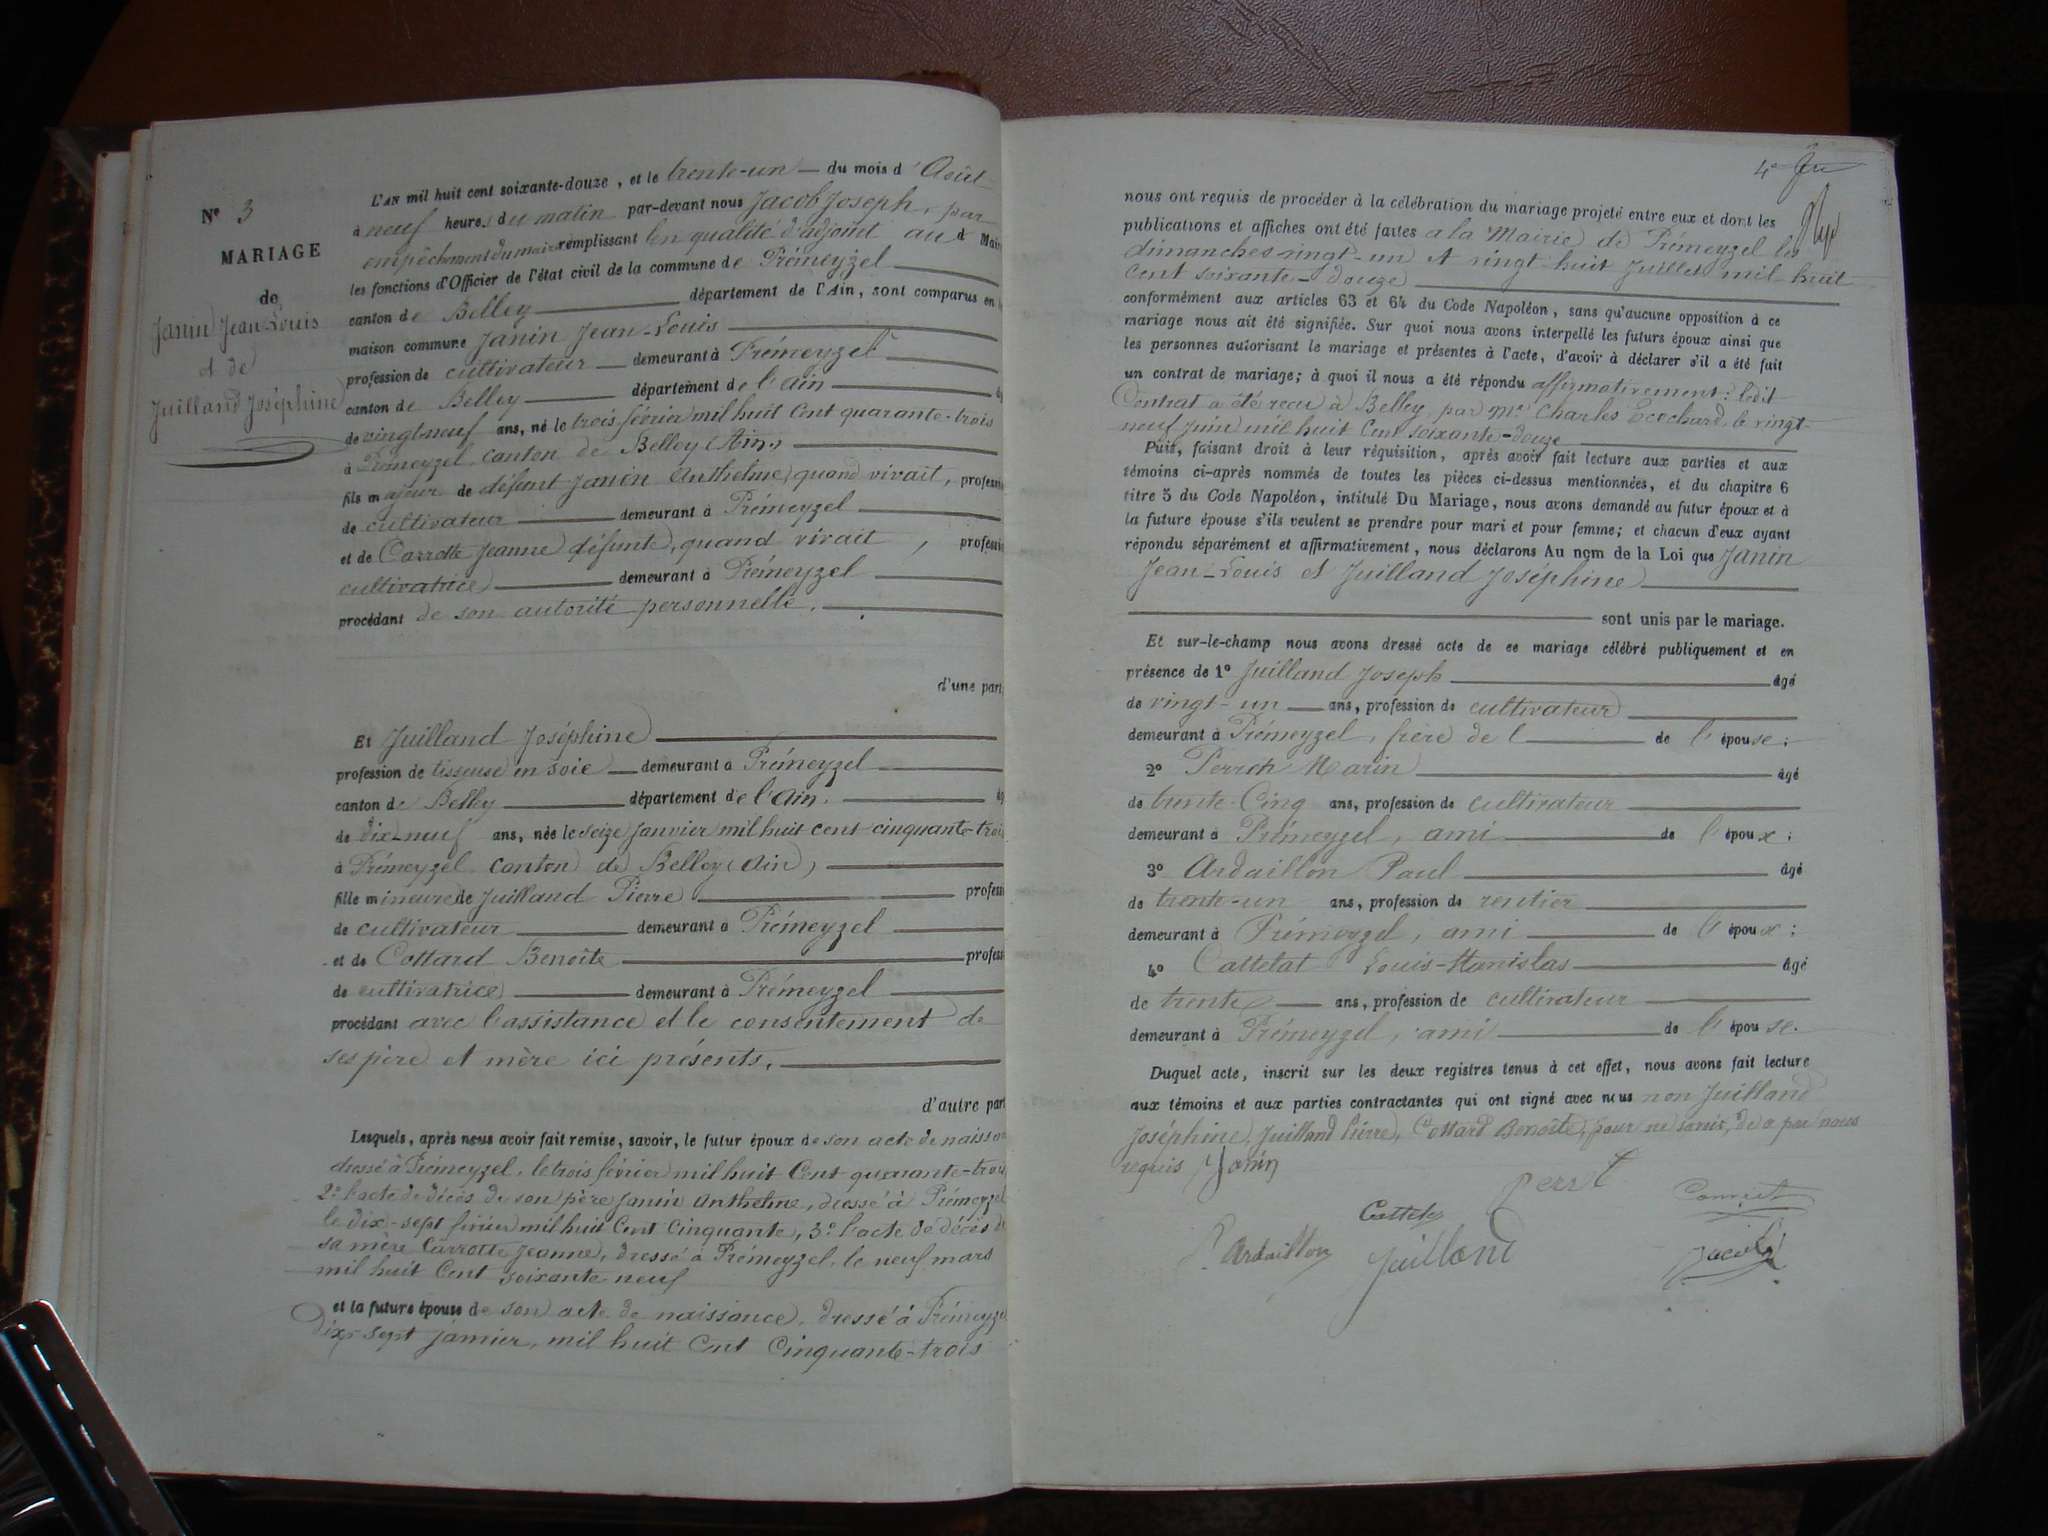 Nº 3
MARIAGE
de
Janin Jean-Louis
et de
Juilland Joséphine
L'AN mil huit cent soixante-douze, et le trente-un du mois d'Août
à neuf heures du matin par-devant nous Jacob Joseph, par
empêchement du maire remplissant en qualité d'adjoint au d Mair
les fonctions d'Officier de l'état civil de la commune de Prémeyzel
canton de Belley département de l'Ain, sont comparus en
maison commune Janin Jean-Louis
profession de cultivateur demeurant à Prémeyzel
canton de Belley département de l'Ain
de vingt-neuf ans, né le trois février mil huit cent quarante-trois
à Prémeyzel canton de Belley (Ain)
fils majeur de défunt Janin Anthelme, quand vivait, professi
de cultivateur demeurant à Prémeyzel
et de Carrotte Jeanne défunte, quand vivait, professi
cultivatrice demeurant à Prémeyzel
procédant de son autorité personnelle.
d'une part
Et Juilland Joséphine
profession de tisseuse en soie demeurant à Prémeyzel
canton de Belley département de l'Ain.
de dix-neuf ans, née le seize janvier mil huit cent cinquante-trois
à Prémeyzel canton de Belley (Ain)
fille mineure de Juilland Pierre profess
de cultivateur demeurant à Prémeyzel
et de Cottard Benoîte profess
de cultivatrice demeurant à Prémeyzel
procédant avec l'assistance et le consentement de
ses père et mère ici présents.
d'autre part
Lesquels, après nous avoir fait remise, savoir, le futur époux de son acte de naissan
dressé à Prémeyzel, le trois février mil huit cent quarante-trois
2º l'acte de décès de son père Janin Anthelme, dressé à Prémeyzel
le dix-sept février mil huit cent cinquante, 3º l'acte de décès de
sa mère Carrotte Jeanne, dressé à Prémeyzel, le neuf mars
mil huit cent soixante neuf
et la future épouse de son acte de naissance, dressé à Prémeyzel
dix-sept janvier, mil huit cent cinquante-trois
4e
nous ont requis de procéder à la célébration du mariage projeté entre eux et dont les
publications et affiches ont été faites a la Mairie de Prémeyzel les
dimanches vingt-un et vingt-huit juillet mil huit
cent soixante-douze
conformément aux articles 63 et 64 du Code Napoléon, sans qu'aucune opposition à ce
mariage nous ait été signifiée. Sur quoi nous avons interpellé les futurs époux ainsi que
les personnes autorisant le mariage et présentes à l'acte, d'avoir à déclarer s'il a été fait
un contrat de mariage; à quoi il nous a été répondu affirmativement: ledit
Contrat a été reçu à Belley par Me Charles Ecochard, le vingt-
neuf juin mil huit cent soixante-douze
Puis, faisant droit à leur réquisition, après avoir fait lecture aux parties et aux
témoins ci-après nommés de toutes les pièces ci-dessus mentionnées, et du chapitre 6
titre 5 du Code Napoléon, intitulé Du Mariage, nous avons demandé au futur époux et à
la future épouse s'ils veulent se prendre pour mari et pour femme; et chacun d'eux ayant
répondu séparément et affirmativement, nous déclarons Au nom de la Loi que Janin
Jean-Louis et Juilland Joséphine
sont unis par le mariage.
Et sur-le-champ nous avons dressé acte de ce mariage célébré publiquement et en
présence de 1º Juilland Joseph âgé
de vingt-un ans, profession de cultivateur
demeurant à Prémeyzel, frère de l de l'épouse;
2º Perret Marin âgé
de trente-cinq ans, profession de cultivateur
demeurant à Prémeyzel, ami de l'époux;
3º Ardaillon Paul âgé
de trente-un ans, profession de rentier
demeurant à Prémeyzel, ami de l'époux;
4º Cattelat Louis-Stanislas âgé
de trente ans, profession de cultivateur
demeurant à Prémeyzel, ami de l'épouse.
Duquel acte, inscrit sur les deux registres tenus à cet effet, nous avons fait lecture
aux témoins et aux parties contractantes qui ont signé avec nous non Juilland
Joséphine, Juilland Pierre, Cottard Benoîte, pour ne savoir, de ce par nous
requis Janin
Perret
Cattela
P. Ardaillon Juilland
Jacob